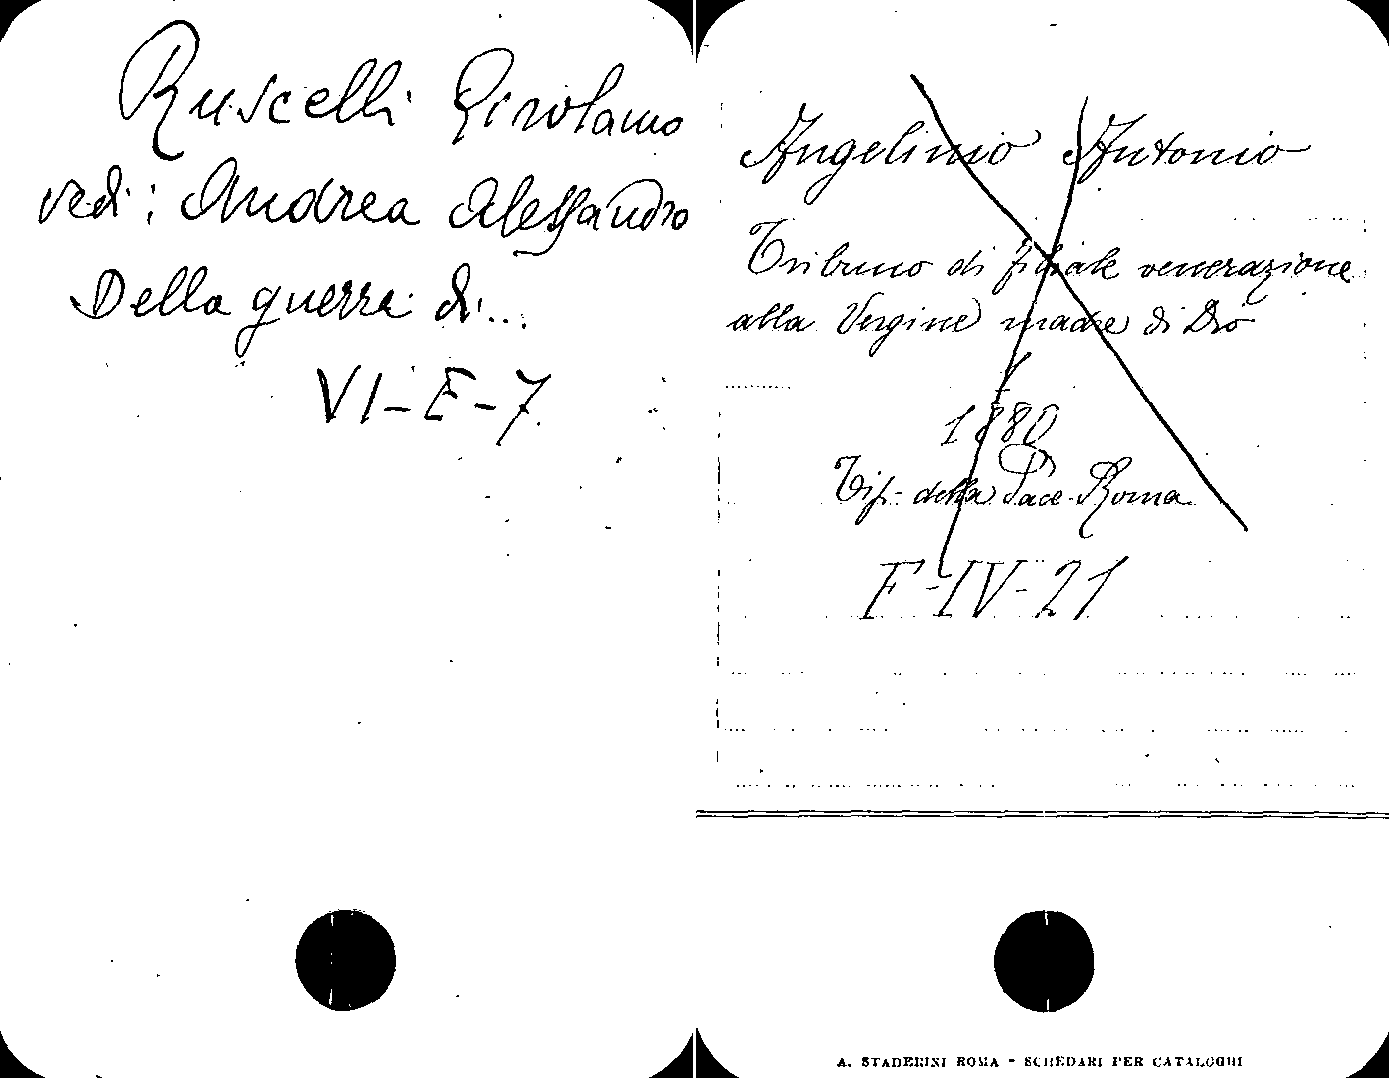 Ruscelli Girolamo
vedi: Andrea Alessandro
Della guerra di...
VI-E-7
Angelinio Antonio
Tribuno di filiale venerazione
alla Vergine madre di Dio
1880
Tip. della Pace-Roma
F-IV-21
A. STADERINI ROMA - SCHEDARI PER CATALOGHI